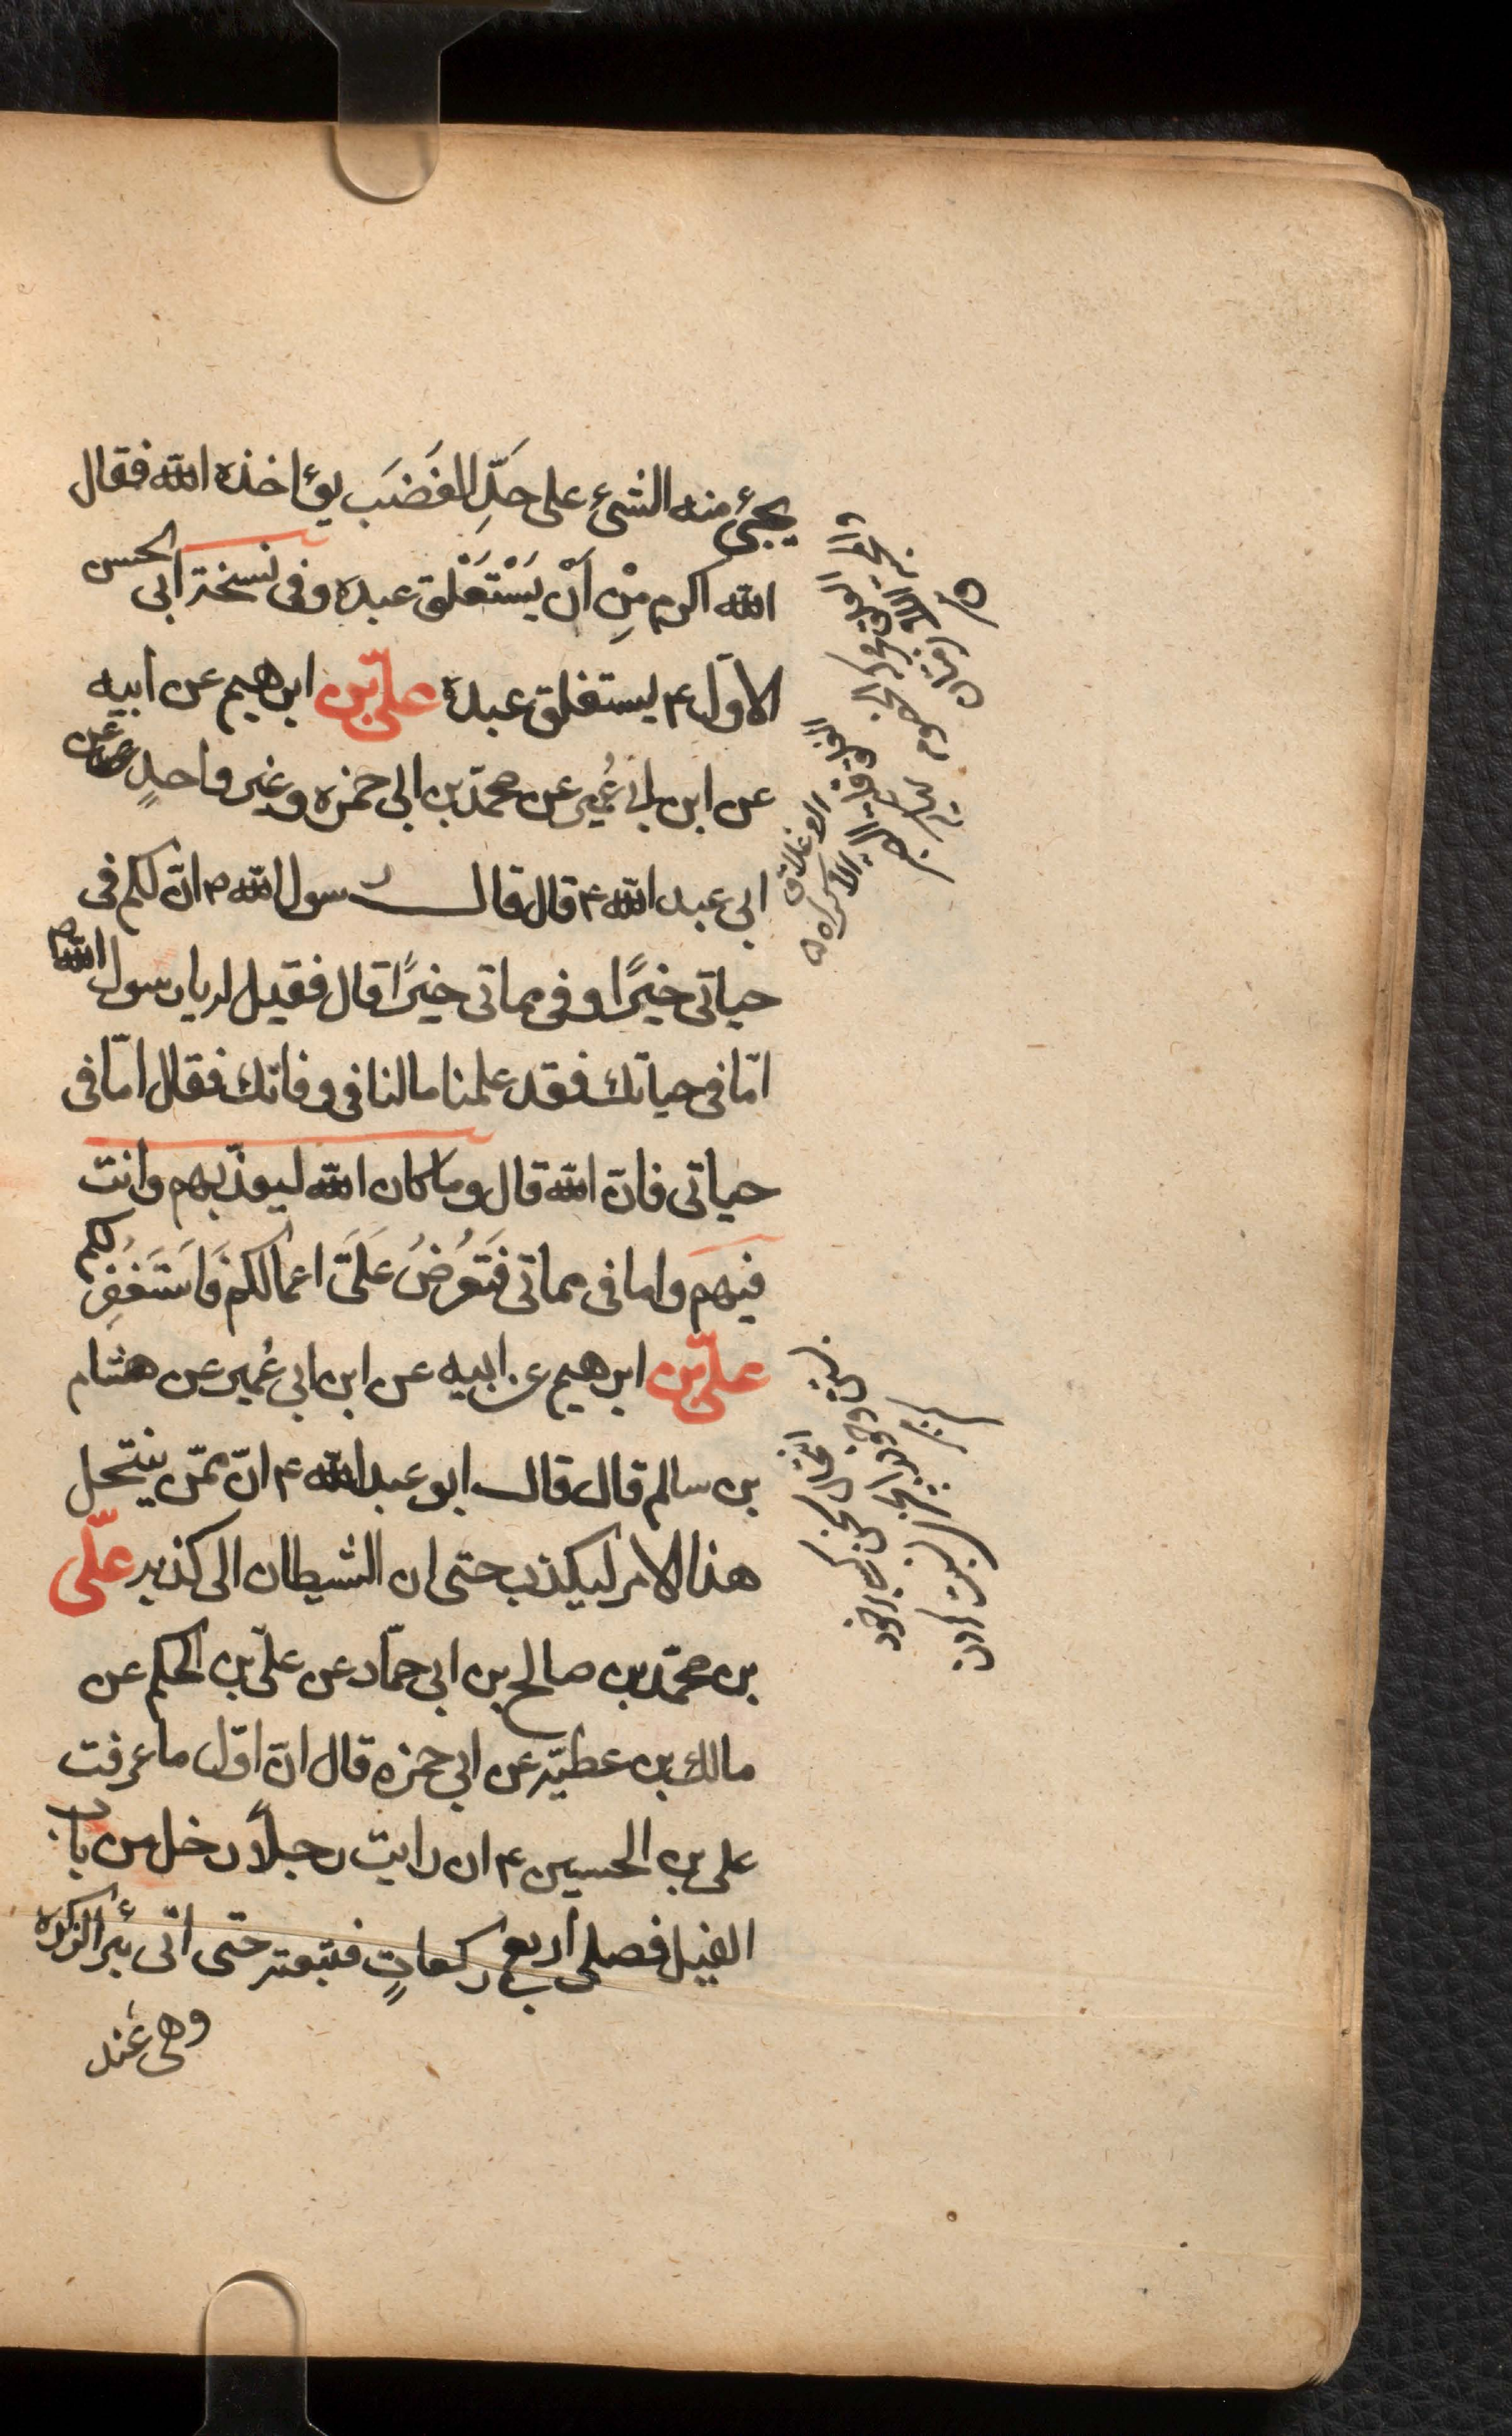 يجئ منه الشئ على حَدِّ الغَضَب يؤاخذه الله فقال
الله اكرم مِنْ اَنْ يَسْتَغْلق عبده وفى نسخة ابى الحسن
الاوّل ع يستغلق عبده علىّ بن ابرهيم عن ابيه
عن ابن ابى عُمير عن محمّد بن ابى حمزه وغير واحدٍ عن
ابى عبد الله ع قال قال رسول الله ص انّ لكم فى
حياتى خيرًا وفى مماتى خيرًا قال فقيل له يا رسول الله
امّا فى حياتك فقد علمنا ما لنا فى وفاتك فقال امّا فى
حياتى فانّ الله قال وما كان الله ليعذّبهم وانت
فيهم واما فى مماتى فَتُعرَضُ عَلَىَّ اعمالكم فَاَستَغفِرُ لكم
علىّ بن ابرهيم عن ابيه عن ابن ابى عُمير عن هشام
بن سالم قال قال ابو عبد الله ع انّ ممّن ينتحل
هذا الامر ليكذب حتى ان الشيطان الى كذبه علّى
بن محمّد بن صالح بن ابى حمّاد عن علىّ بن الحكم عن
مالك بن عطيّه عن ابى حمزه قال انّ اوّل ما عرفت
على بن الحسين ع ان رايت رجلاً دخل من باب
الفيل فصلى أربع ركعاتٍ فتبعته حتى اتى بئر الزكوة
وهى عند